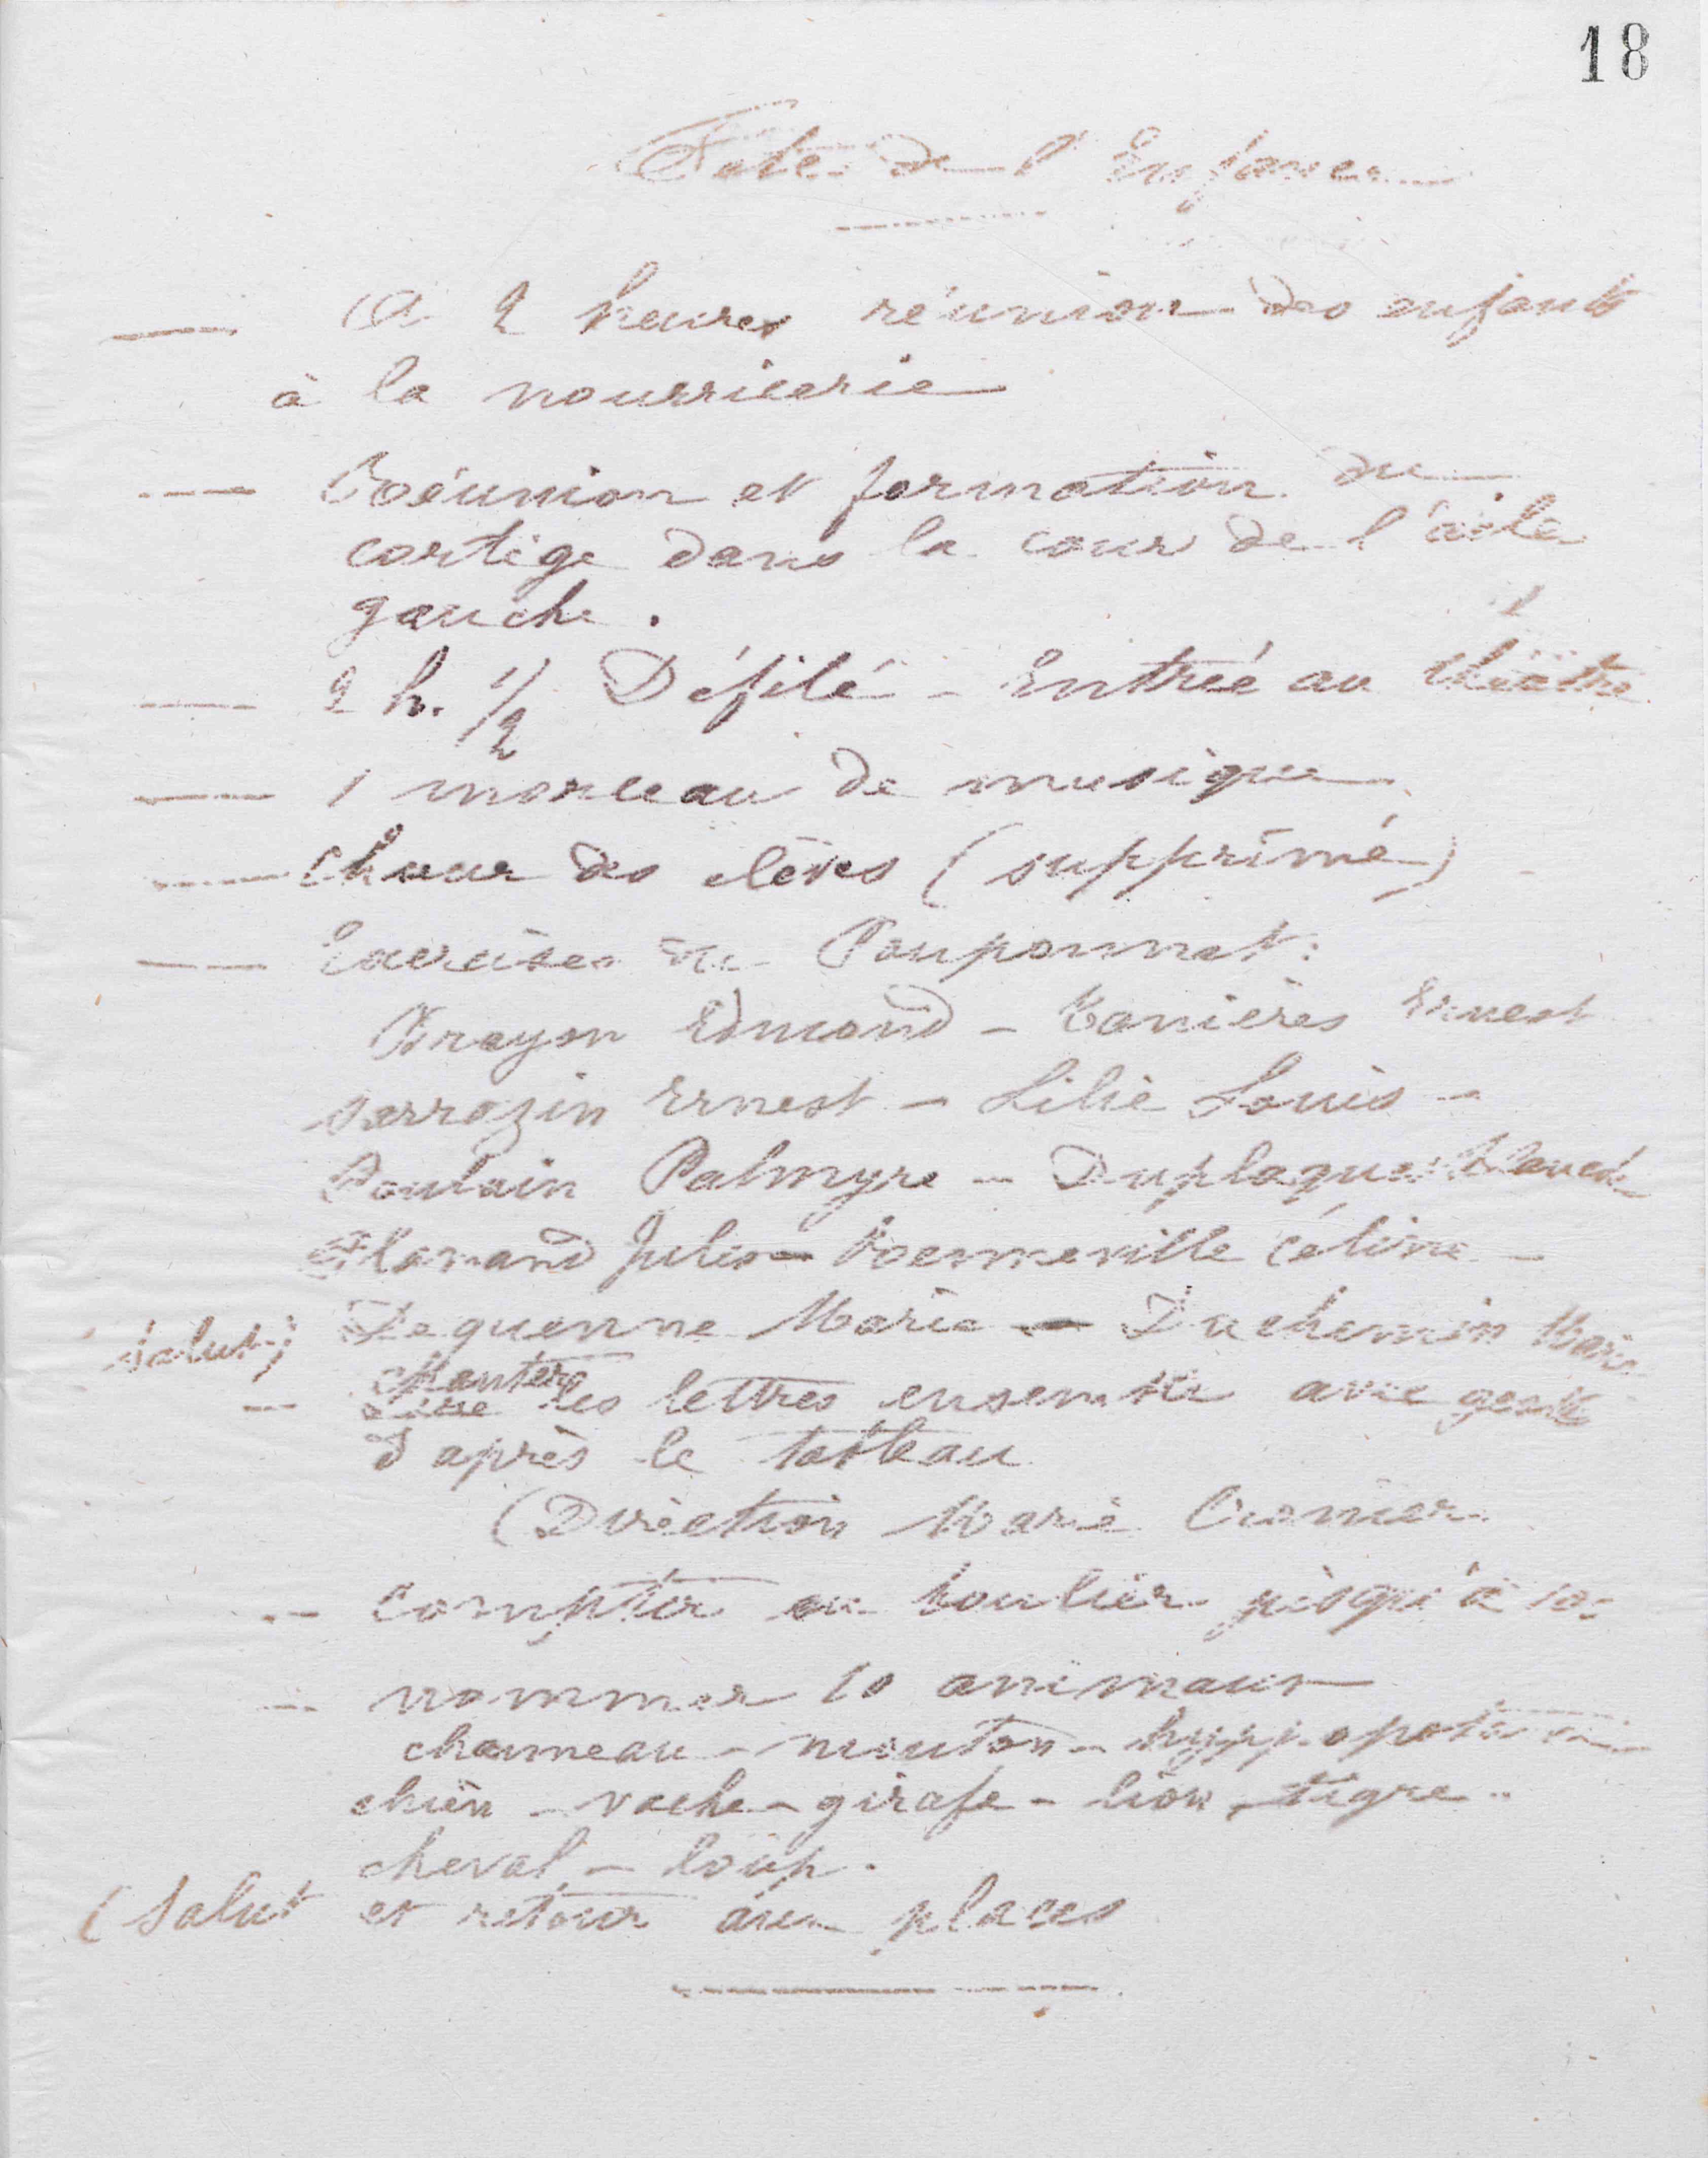 18
Fête de l'Enfance
— A 2 heures réunion des enfants
à la nourricerie
— Réunion et formation du
cortège dans la cour de l'aile
gauche.
— 2 h. 1/2 Défilé - Entrée au théâtre
— 1 morceau de musique
— Chœur des élèves (supprimé)
— Exercices du Pouponnat:
Drayon Edmond - Ernest
Sarrazin Ernest - Lilié Louis -
Poulain Palmyre - Duplaquet
Flamand Jules - Céline -
Dequenne Marie - Duchemin Marie
Salut)
chanter
- les lettres ensemble avec gestes
d'après le tableau
(Direction Marie
- compter au boulier jusqu'à 10
- nommer 10 animaux
chameau - mouton - hyppopotame
chien - vache - girafe - lion - tigre -
cheval - loup.
(Salut et retour aux places